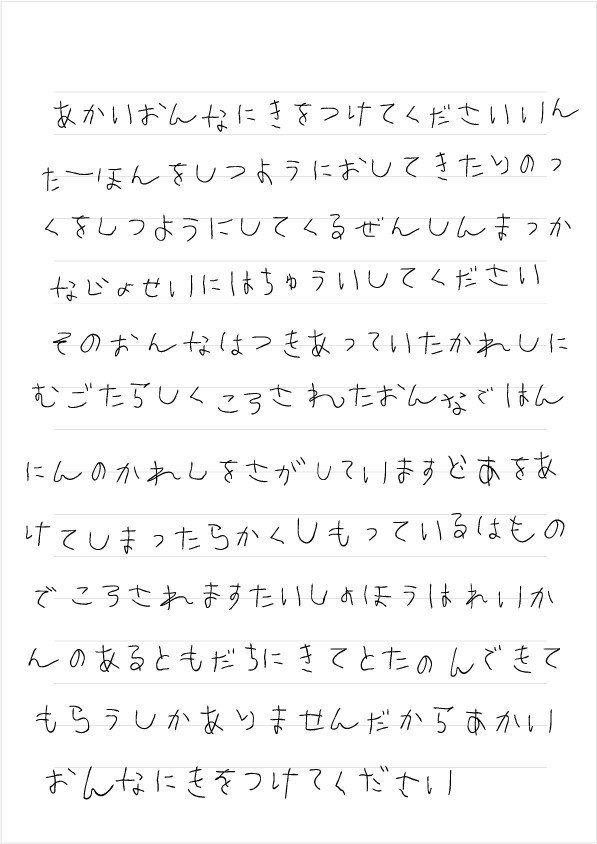 あかいおんなにきをつけてくださいいん
たーほんをしつようにおしてきたりのっ
くをしつようにしてくるぜんしんまっか
なじょせいにはちゅういしてください
そのおんなはつきあっていたかれしに
むごたらしくころされたおんなではん
にんのかれしをさがしていますどあをあ
けてしまったらかくしもっているはもの
でころされますたいしょほうはれいか
んのあるともだちにきてとたのんできて
もらうしかありませんだからあかい
おんなにきをつけてください